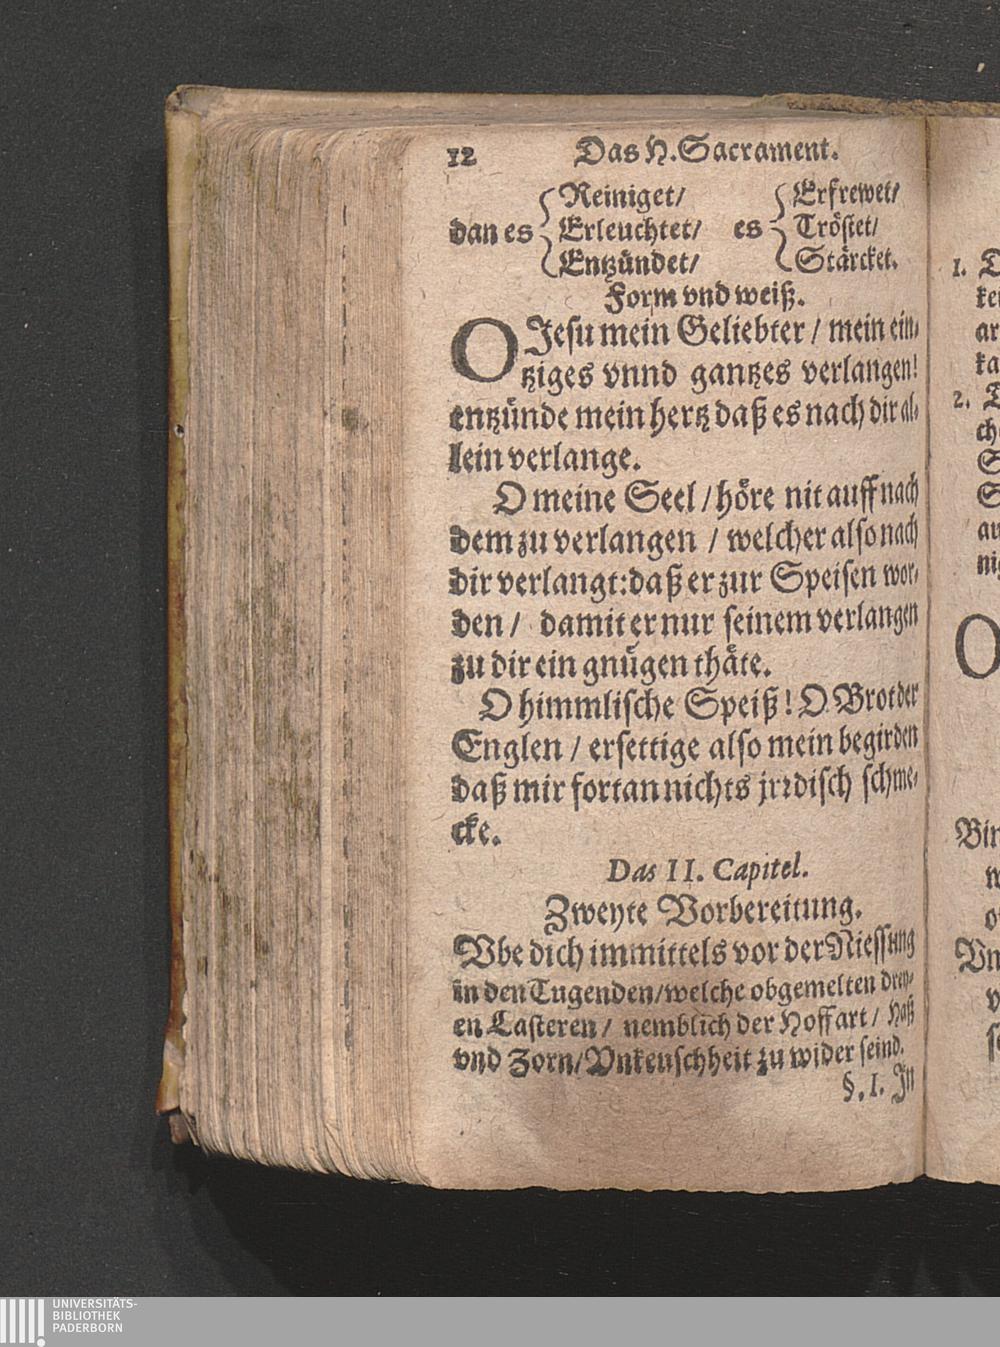 12 Das H. Sacrament.
dan es { Reiniget/ es { Erfrewet/
Erleuchtet/ Tröstet/
Entzündet/ Stärcket.
Form vnd weiß.
O Jesu mein Geliebter / mein ein-
tziges vnnd gantzes verlangen!
entzünde mein hertz daß es nach dir al-
lein verlange.
O meine Seel / höre nit auff nach
dem zu verlangen / welcher also nach
dir verlangt: daß er zur Speisen wor-
den / damit er nur seinem verlangen
zu dir ein gnügen thäte.
O himmlische Speiß! O Brot der
Englen / ersettige also mein begirden
daß mir fortan nichts jrrdisch schme-
cke.
Das II. Capitel.
Zweyte Vorbereitung.
Vbe dich immittels vor der Niessung
in den Tugenden/ welche obgemelten drey-
en Lasteren / nemblich der Hoffart / Haß
vnd Zorn/ Vnkeuschheit zu wider seind.
§. I. In
1. D
kei
ar
ka
2.
che
S
S
au
nig
O
Bin
w
Vn
v
UNIVERSITÄTS-
BIBLIOTHEK
PADERBORN